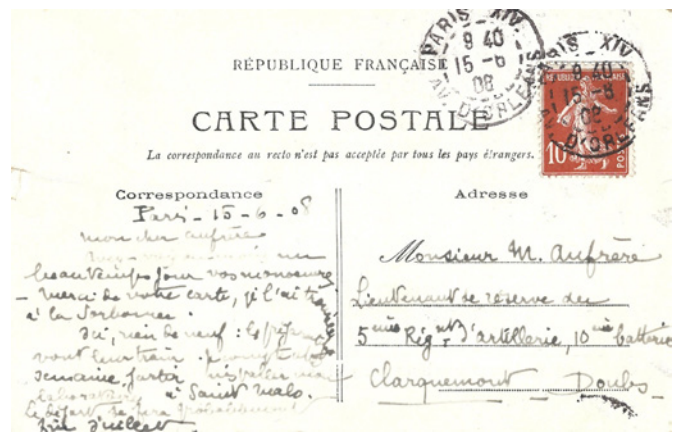 RÉPUBLIQUE FRANÇAISE
CARTE POSTALE
La correspondance au recto n'est pas acceptée par tous les pays étrangers.
PARIS XIV
9 40
15 - 6
08
AV. D'ORLÉANS
PARIS XIV
9 40
15 - 6
08
D'ORLÉANS
RÉPUBLIQUE FRANÇAISE
10
POSTES
Correspondance
Paris - 15 - 6 - 08
mon cher Aufrère
un
beau temps pour vos manoeuvres
- merci de votre carte, je l'ai trouvée
à la Sorbonne.
Ici, rien de neuf : les
vont leur train :
semaine, partir
laboratoire à Saint Malo.
Le départ se fera probablement
fin Juillet
Adresse
Monsieur M. Aufrère
Lieutenant de réserve au
5ème Régnt d'artillerie, 10ème batterie
Clarquemont Doubs